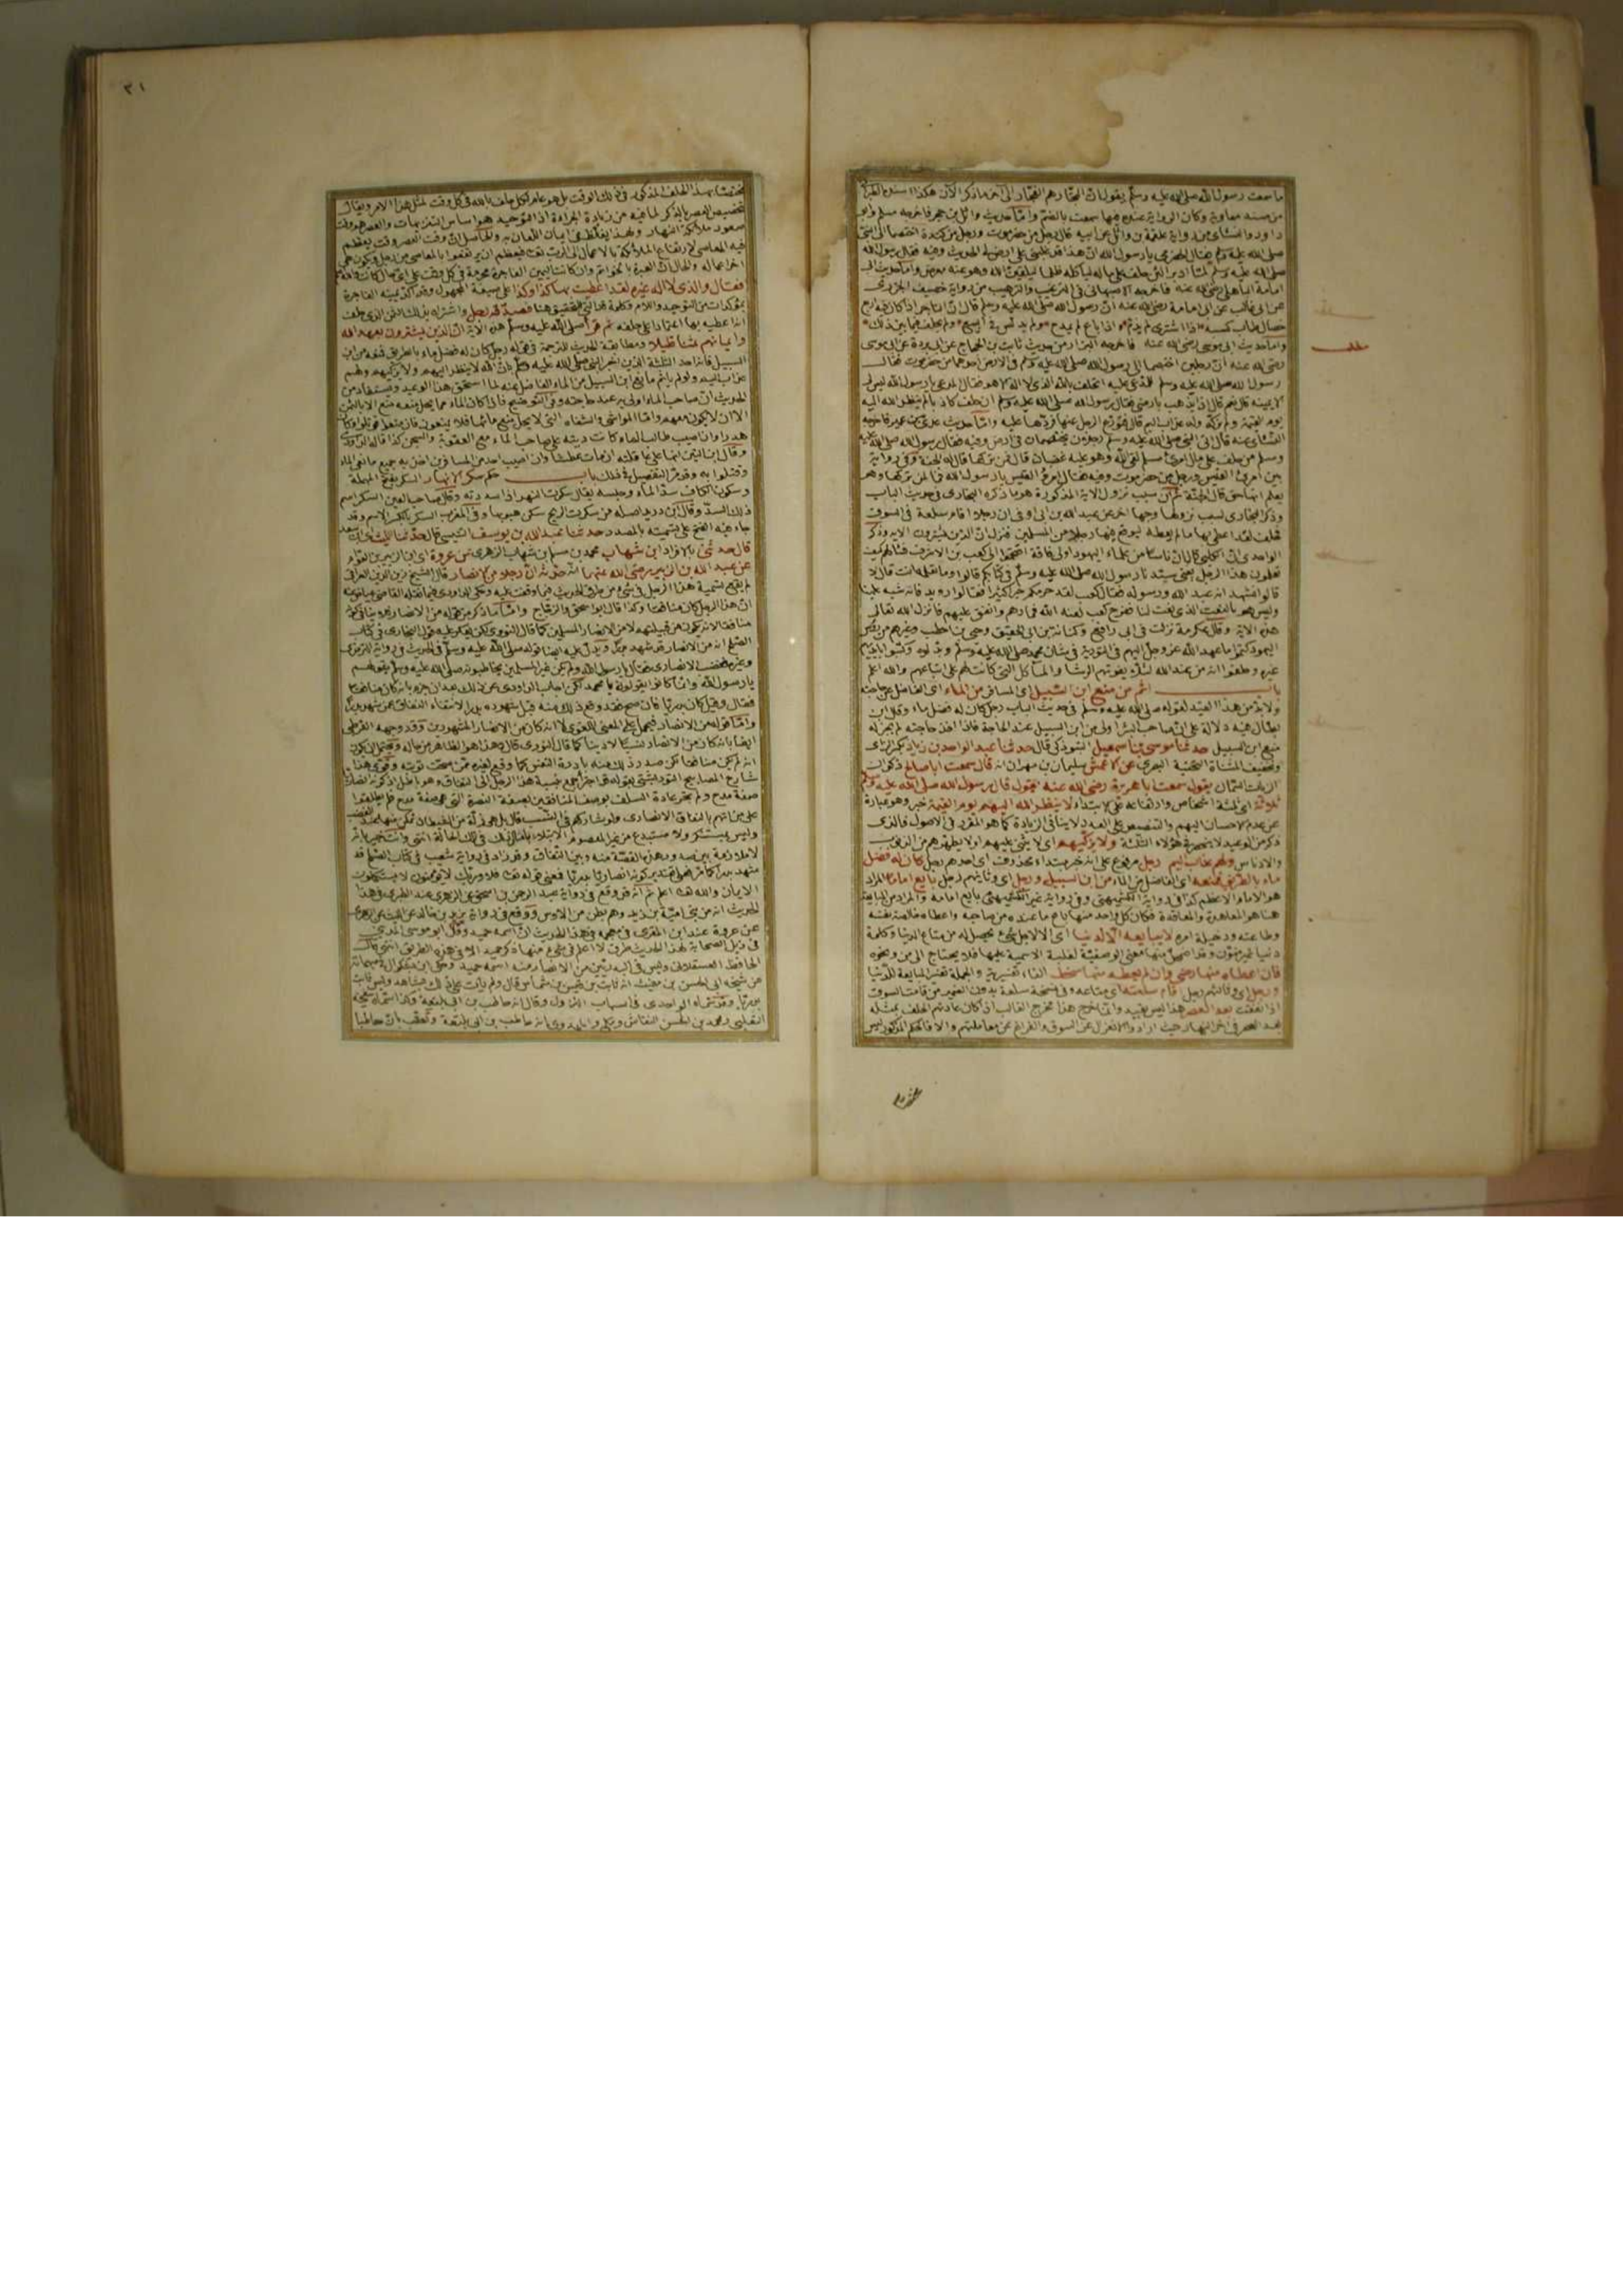 ما سمعت رسول الله صلى الله عليه وسلم يقول ان التجار هم الفجار الى آخر ما ذكر الآن هكذا اسنده الطبراني
من مسند معاوية وكان الرواية عنده فيها سمعت بالضم واما حديث وائل بن حجر فاخرجه مسلم وابو
داود والنسائي من رواية علقمة بن وائل عن ابيه قال رجل من حضرموت ورجل من كندة اختصما الى النبي
صلى الله عليه وسلم فقال الحضرمي يا رسول الله ان هذا قد غلبني على ارض لي الحديث وفيه فقال رسول الله
صلى الله عليه وسلم لما ادبر لئن حلف على ماله ليأكله ظلما ليلقين الله وهو عنه معرض واما حديث ابي
امامة الباهلي رضى الله عنه فاخرجه الاصبهاني في الترغيب والترهيب من رواية خصيف الجزري
عن ابي غالب عن ابي امامة رضى الله عنه ان رسول الله صلى الله عليه وسلم قال ان التاجر اذا كان فيه اربع
خصال طاب كسبه اذا اشترى لم يذم واذا باع لم يمدح ولم يدلس في البيع ولم يحلف فيما بين ذلك
واما حديث ابي موسى رضى الله عنه فاخرجه البزار من حديث ثابت بن الحجاج عن ابي بردة عن ابي موسى
رضى الله عنه ان رجلين اختصما الى رسول الله صلى الله عليه وسلم في ارض احدهما من حضرموت فقال
رسول الله صلى الله عليه وسلم للمدعى عليه اتحلف بالله الذي لا اله الا هو فقال المدعي يا رسول الله ليس لي
الا يمينه قال نعم قال اذا يذهب بارضي فقال رسول الله صلى الله عليه وسلم ان حلف كاذبا لم ينظر الله اليه
يوم القيمة ولم يزكه وله عذاب اليم قال فتورع الرجل عنها فردها عليه واما حديث عدي بن عميرة فاخرجه
النسائي عنه قال اتى النبي صلى الله عليه وسلم رجلان يختصمان في ارض وفيه فقال رسول الله صلى الله عليه
وسلم من حلف على مال امرئ مسلم لقي الله وهو عليه غضبان قال فمن تركها قال له الجنة وفي رواية
بين امرئ القيس ورجل من حضرموت وفيه فقال امرؤ القيس يا رسول الله فما لمن تركها وهو
يعلم انها حق قال الجنة ثم ان سبب نزول الاية المذكورة هو ما ذكره البخاري في حديث الباب
وذكر البخاري لسبب نزولها وجها اخر عن عبد الله بن ابي اوفى ان رجلا اقام سلعة في السوق
فحلف لقد اعطي بها ما لم يعطه ليوقع فيها رجلا من المسلمين فنزل ان الذين يشترون الاية وذكر
الواحدي ان الكلبي قال ان ناسا من علماء اليهود اولي فاقة اقتحموا الى كعب بن الاشرف فسألهم كيف
تعلمون هذا الرجل يعني سيدنا رسول الله صلى الله عليه وسلم في كتابكم قالوا وما تعلمه انت قال لا
قالوا نشهد انه عبد الله ورسوله فقال كعب لقد حرمكم خيرا كثيرا فقالوا رويد فانه شبه علينا
وليس هو بالنعت الذي نعت لنا ففرح كعب لعنه الله فمارهم وانفق عليهم فانزل الله تعالى
هذه الاية وقال عكرمة نزلت في ابي رافع وكنانة بن ابي الحقيق وحيي بن اخطب وغيرهم من رؤس
اليهود كتموا ما عهد الله عز وجل اليهم في التورية في شان محمد صلى الله عليه وسلم وبدلوه وكتبوا بايديهم
غيره وحلفوا انه من عند الله لئلا يفوتهم الرشا والمآكل التي كانت لهم على اتباعهم والله اعلم
باب اثم من منع ابن السبيل اى المسافر من الماء اى الفاضل عن حاجته
ولا بد من هذا القيد لقوله صلى الله عليه وسلم في حديث الباب رجل كان له فضل ماء وقال ابن
بطال فيه دلالة على ان صاحب البئر اولى من ابن السبيل عند الحاجة فاذا اخذ حاجته لم يجز له
منع ابن السبيل حدثنا موسى بن اسمعيل التبوذكي قال حدثنا عبد الواحد بن زياد بكسر الزاى
وتخفيف المثناة التحتية البصري عن الاعمش سليمان بن مهران انه قال سمعت ابا صالح ذكوان
الزيات السمان يقول سمعت ابا هريرة رضى الله عنه يقول قال رسول الله صلى الله عليه وسلم
ثلاثة اى ثلثة اشخاص وارتفاعه على الابتداء لا ينظر الله اليهم يوم القيمة خبره وهو عبارة
عن عدم الاحسان اليهم والتنصيص على العدد لا ينافي الزيادة كما هو المقرر في الاصول فالذي
ذكر من الوعيد لا ينحصر في هؤلاء الثلثة ولا يزكيهم اى لا يثني عليهم او لا يطهرهم من الذنوب
والادناس ولهم عذاب اليم رجل مرفوع على انه خبر مبتداء محذوف اى احدهم رجل كان له فضل
ماء بالطريق فمنعه اى الفاضل من الماء من ابن السبيل ورجل اى وثانيهم رجل بايع اماما المراد
هو الامام الاعظم كذا في رواية الكشميهني وفي رواية غير الكشميهني بايع امامه والمراد من المبايعة
هنا هو المعاهدة والمعاقدة فكان كل واحد منهما باع ما عنده من صاحبه واعطاه خالصة نفسه
وطاعته ودخيلة امره لا يبايعه الا لدنيا اى الا لاجل شئ يحصل له من متاع الدنيا وكلمة
دنيا غير منون وقد اضمحل منها معنى الوصفية لغلبة الاسمية عليها فلا يحتاج الى من ونحوه
فان اعطاه منها رضي وان لم يعطه منها سخط الفاء تفسيرية والجملة تفسير لمبايعة للدنيا
ورجل اى وثالثهم رجل اقام سلعته اى متاعه وفي نسخة سلعة بدون الضمير من قامت السوق
اذا نفقت بعد العصر هذا ليس بقيد وانما خرج هذا مخرج الغالب اذ كان عادتهم الحلف بمثله
بعد العصر في اخر النهار حيث ارادوا الانعزال عن السوق والفراغ عن معاملتهم والا فالحكم المذكور ليس
مطلب
مختصا
٣١
مختصا بهذا الحلف المذكور في ذلك الوقت بل هو عام لكل حلف بالله في كل وقت لمثل هذا الامر ويقال
تخصيص العصر بالذكر لما فيه من زيادة الجراءة اذ التوحيد هو اساس التنزيهات والعصر هو وقت
صعود ملائكة النهار ولهذا يغلظ في ايمان اللعان به والحاصل ان وقت العصر وقت يعظم
فيه المعاصي لارتفاع الملائكة بالاعمال الى الرب تعالى
اخر اعماله والحال ان العبرة بالخواتم وان كانت اليمين الفاجرة محرمة في كل وقت
فقال والذي لا اله غيره لقد اعطيت بها كذا وكذا على صيغة المجهول وقد اكد يمينه الفاجرة
بمؤكدات من التوحيد واللام وكلمة قد التي للتحقيق هنا فصدقه رجل واشتراه بذلك الثمن الذي حلف
انه اعطيه بها اعتمادا على حلفه ثم قرأ صلى الله عليه وسلم هذه الاية ان الذين يشترون بعهد الله
وايمانهم ثمنا قليلا ومطابقة الحديث للترجمة في قوله رجل كان له فضل ماء بالطريق فمنعه من ابن
السبيل فانه احد الثلثة الذين اخبر النبي صلى الله عليه وسلم بان الله لا ينظر اليهم ولا يزكيهم ولهم
عذاب اليم ولو لم ياثم مانع ابن السبيل من الماء الفاضل عنه لما استحق هذا الوعيد ويستفاد من
الحديث ان صاحب الماء اولى به عند حاجته وفي التوضيح فاذا كان الماء مما يحل منعه منع الا بالثمن
الا ان لا يكون معهم واما المواشي والشفاه التي لا يحل منع مائها فلا يمنعون فان منعوا قوتلوا وكان
هدرا وان اصيب طالب الماء كانت ديته على صاحب الماء مع العقوبة والسجن كذا قاله الداودي
وقال ابن التين انها على عاقلته ان مات عطشا وان اصيب احد من المسافرين اخذ به جميع مانعي الماء
وقتلوا به وقد مر التفصيل في ذلك باب حكم سكر الانهار السكر بفتح المهملة
وسكون الكاف سد الماء وحبسه يقال سكرت النهر اذا سددته وقال صاحب العين السكر اسم
ذلك السد وقال ابن دريد اصله من سكرت الريح سكن هبوبها وفي المغرب السكر بالكسر الاسم وقد
جاء فيه الفتح على تسميته بالمصدر حدثنا عبد الله بن يوسف التنيسي قال حدثنا الليث اى ابن سعد
قال حدثني بالافراد ابن شهاب محمد بن مسلم بن شهاب الزهري عن عروة اى ابن الزبير بن العوام
عن عبد الله بن الزبير رضى الله عنهما انه حدثه ان رجلا من الانصار قال الشيخ زين الدين العراقي
لم يقع تسمية هذا الرجل في شئ من طرق الحديث فيما وقفت عليه وحكى الداودي فيما نقله القاضي عياض عنه
ان هذا الرجل كان منافقا وكذا قال ابو اسحق الزجاج واما ما ذكر من قوله من الانصار فلا ينافي كونه
منافقا لانه يكون من قبيلتهم لا من الانصار المسلمين كما قال النووي لكن يعكر عليه قول البخاري في كتاب
الصلح انه من الانصار قد شهد بدرا ويدل عليه ايضا قوله صلى الله عليه وسلم في الحديث في رواية الترمذي
وغيره فغضب الانصاري فقال يا رسول الله ولم يكن غير المسلمين يخاطبونه صلى الله عليه وسلم بقولهم
يا رسول الله وانما كانوا يقولون يا محمد لكن اجاب الداودي عن ذلك بعد ان جزم بانه كان منافقا
فقال وقيل كان بدريا فان صح فقد وقع ذلك منه قبل شهوده بدرا لانتفاء النفاق عمن شهد بدرا
واما قوله من الانصار فيحمل على المعنى اللغوي لا انه كان من الانصار المشهورين وقد وجهه القرطبي
ايضا بانه كان من الانصار نسبا لا دينا كما قال النووي قال وهذا هو الظاهر من حاله ويحتمل ان يكون
انه لم يكن منافقا لكن صدر ذلك منه بادرة النفس كما وقع لغيره ممن صحت توبته وقوى هذا
شارح المصابيح التوربشتي بقوله قد اجترأ جمع بنسبة هذا الرجل الى النفاق وهو باطل اذ كونه انصاريا
صفة مدح ولم يجر عادة السلف بوصف المنافقين بصفة النصرة التي هي صفة مدح
على من اتهم بالنفاق الانصاري ولو شاركهم في النسب قال بل هي زلة من الشيطان تمكن منها عند الغضب
وليس بمستنكر ولا مستبدع من غير المعصوم الابتلاء بامثال ذلك في تلك الحالة انتهى وانت خبير بانه
لا ملازمة بين هذه القصة منه وبين النفاق وقد زاد في رواية شعيب في كتاب الصلح قد
شهد بدرا كما مر فعلى تقدير كونه انصاريا بدريا فمعنى قوله تعالى فلا وربك لا يؤمنون لا يستكملون
الايمان والله تعالى اعلم ثم انه قد وقع في رواية عبد الرحمن بن اسحق عن الزهري عند الطبري في هذا
الحديث انه من بني امية بن زيد وهم بطن من الاوس ووقع في رواية يزيد بن خالد عن الليث عن الزهري
عن عروة عند ابن المقري في معجمه في هذا الحديث ان اسمه حميد وقال ابو موسى المديني
في ذيل الصحابة لهذا الحديث طرق لا اعلم في شئ منها ذكر حميد الا في هذه الطريق انتهى قال
الحافظ العسقلاني وليس في البدريين من الانصار من اسمه حميد وحكى ابن بشكوال في مبهماته
عن شيخه ابي الحسن بن مغيث انه ثابت بن قيس بن شماس قال ولم يأت على ذلك بشاهد وليس ثابت
بدريا وقد سماه الواحدي في اسباب النزول وقال انه حاطب بن ابي بلتعة وكذا سماه شيخه
الثعلبي ومحمد بن الحسن النقاش ومكي والمهدوي انه حاطب بن ابي بلتعة وتعقب بان حاطبا